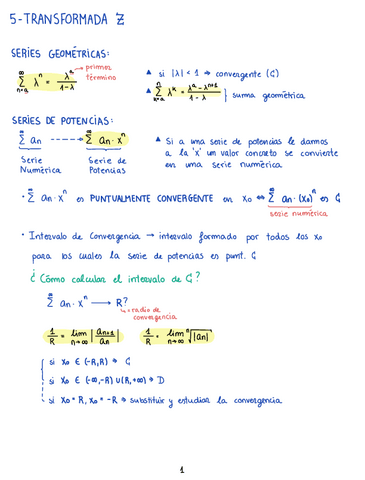 5-TRANSFORMADA Z
SERIES GEOMÉTRICAS:
∞ Σ n=a λⁿ = λᵃ / 1-λ → primer término
▲ si |λ| < 1 → convergente (C)
▲ n Σ k=a λᵏ = λᵃ - λⁿ⁺¹ / 1-λ } suma geométrica
SERIES DE POTENCIAS:
∞ Σ an -----> ∞ Σ an · xⁿ
Serie Numérica
Serie de Potencias
▲ Si a una serie de potencias le damos
a la 'x' un valor concreto se conviente
en una serie numérica
· ∞ Σ an · xⁿ es PUNTUALMENTE CONVERGENTE en x₀ ⇔ ∞ Σ an · (x₀)ⁿ es C
serie numérica
· Intervalo de Convergencia → intervalo formado por todos los x₀
para los cuales la serie de potencias es punt. C
¿ Cómo calcular el intervalo de C ?
∞ Σ an · xⁿ → R?
→ radio de convergencia
1/R = lim n→∞ |an+1 / an|
1/R = lim n→∞ ⁿ√|an|
si x₀ ∈ (-R,R) → C
si x₀ ∈ (-∞,-R) ∪ (R,+∞) → D
si x₀ = R, x₀ = -R → substituir y estudiar la convergencia
1